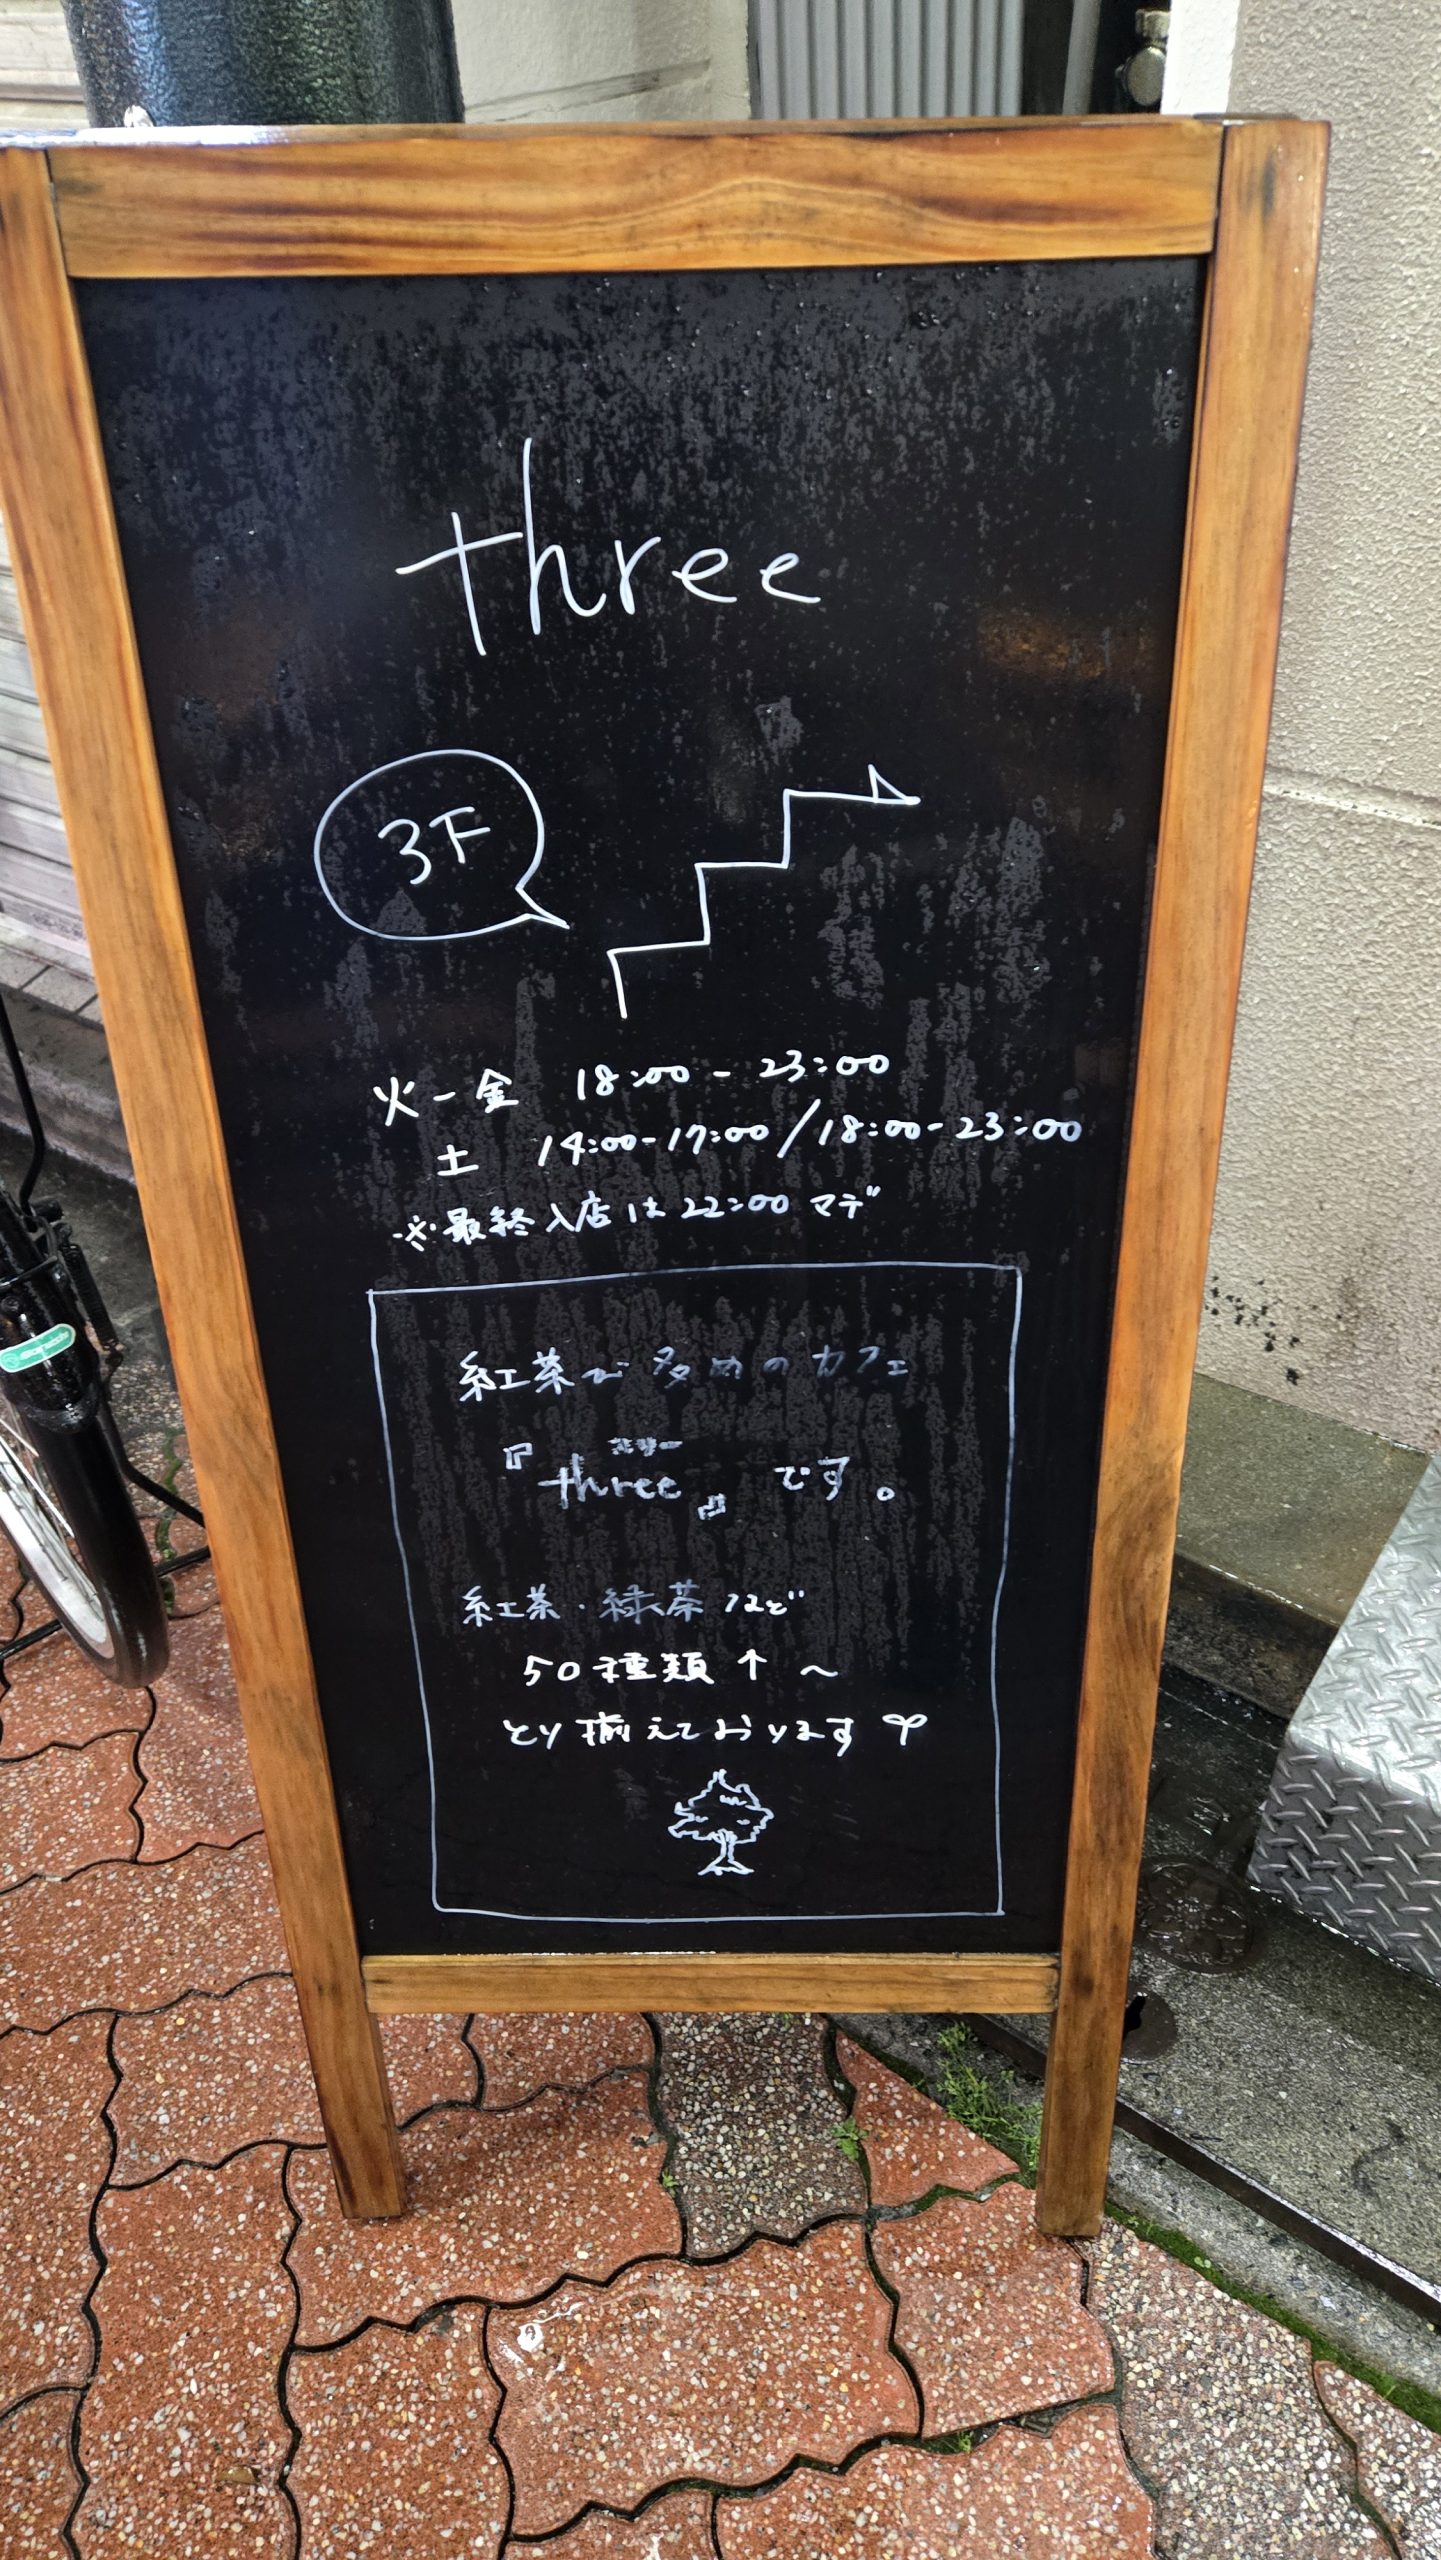 three
3F
火-金 18:00-23:00
土 14:00-17:00/18:00-23:00
※最終入店は22:00マデ
紅茶が多めのカフェ
スリー
『three』です。
紅茶・緑茶など
50種類↑~
とり揃えております